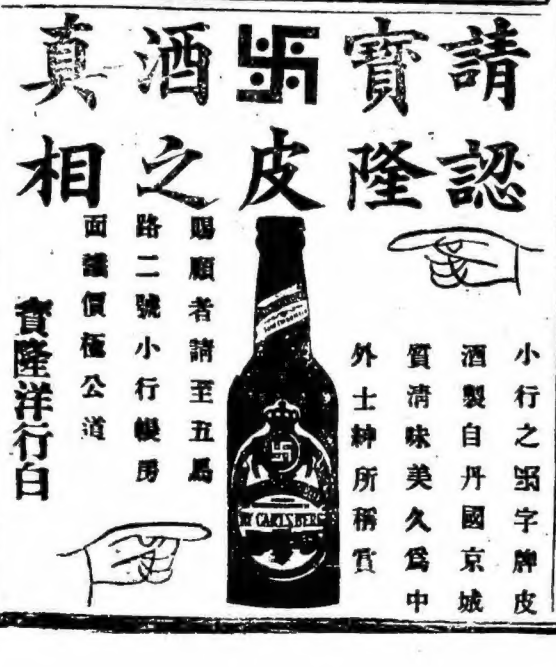 請認
寶隆
卐皮
酒之
真相
小行之卐字牌皮
酒製自丹國京城
質清味美久爲中
外士紳所稱賞
賜顧者請至五馬
路二號小行帳房
面議價極公道
寶隆洋行白
NY CARLSBERG